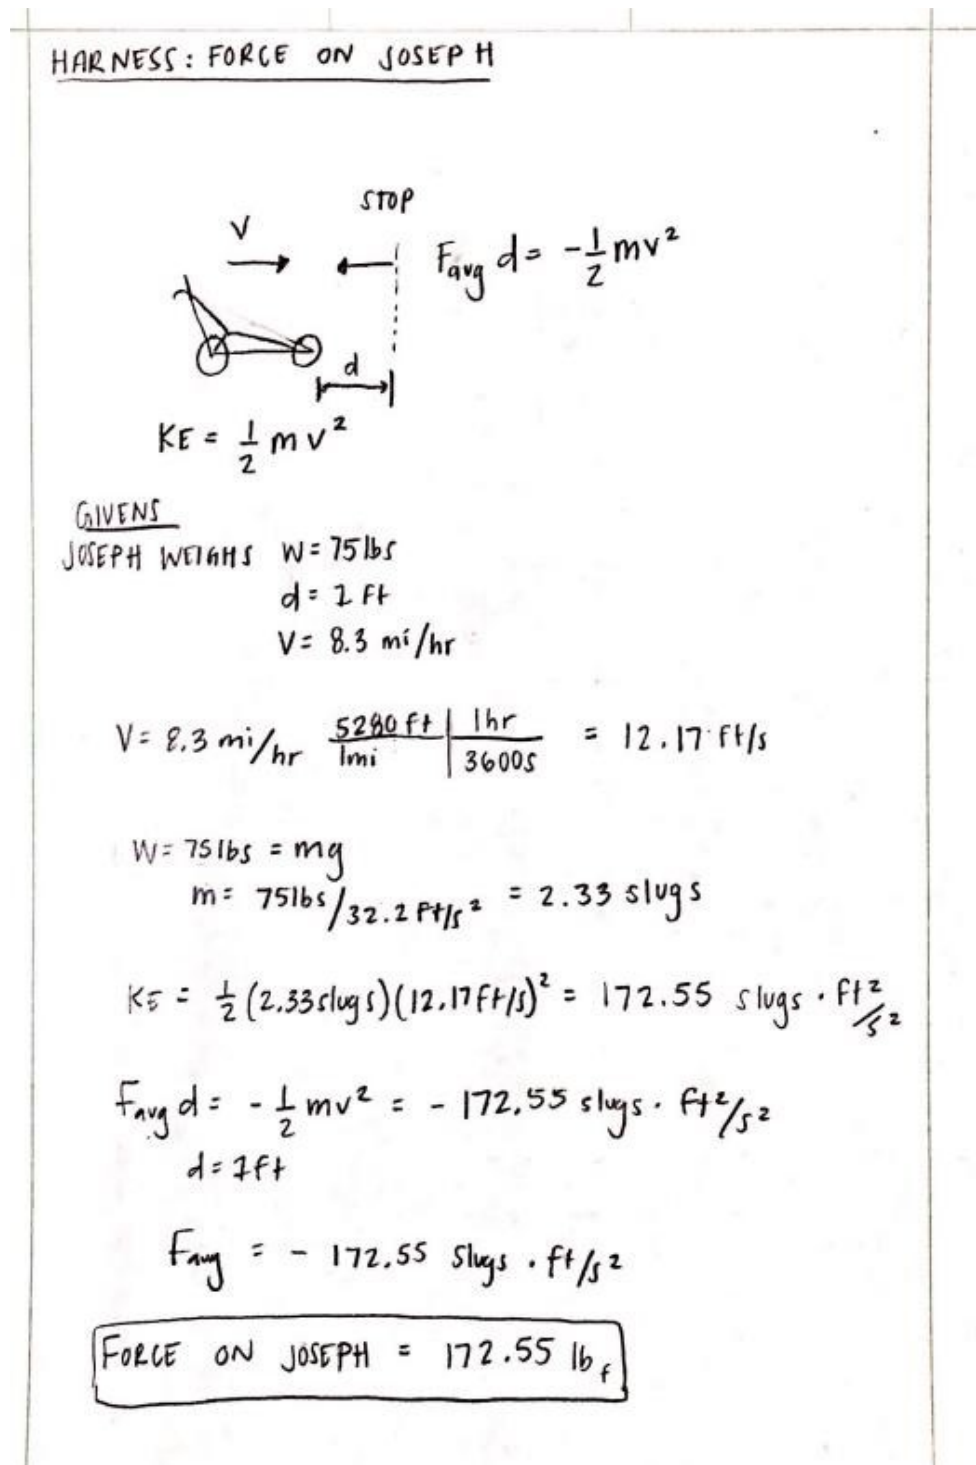 HARNESS: FORCE ON JOSEPH
STOP
V
F_avg d = -1/2 mv²
d
KE = 1/2 mv²
GIVENS
JOSEPH WEIGHS W = 75 lbs
d = 1 ft
V = 8.3 mi/hr
V = 8.3 mi/hr 5280 ft/1mi | 1hr/3600s = 12.17 ft/s
W = 75 lbs = mg
m = 75lbs/32.2 ft/s² = 2.33 slugs
KE = 1/2 (2.33 slugs)(12.17 ft/s)² = 172.55 slugs · ft²/s²
F_avg d = -1/2 mv² = -172.55 slugs · ft²/s²
d = 1ft
F_avg = -172.55 slugs · ft/s²
FORCE ON JOSEPH = 172.55 lb_f